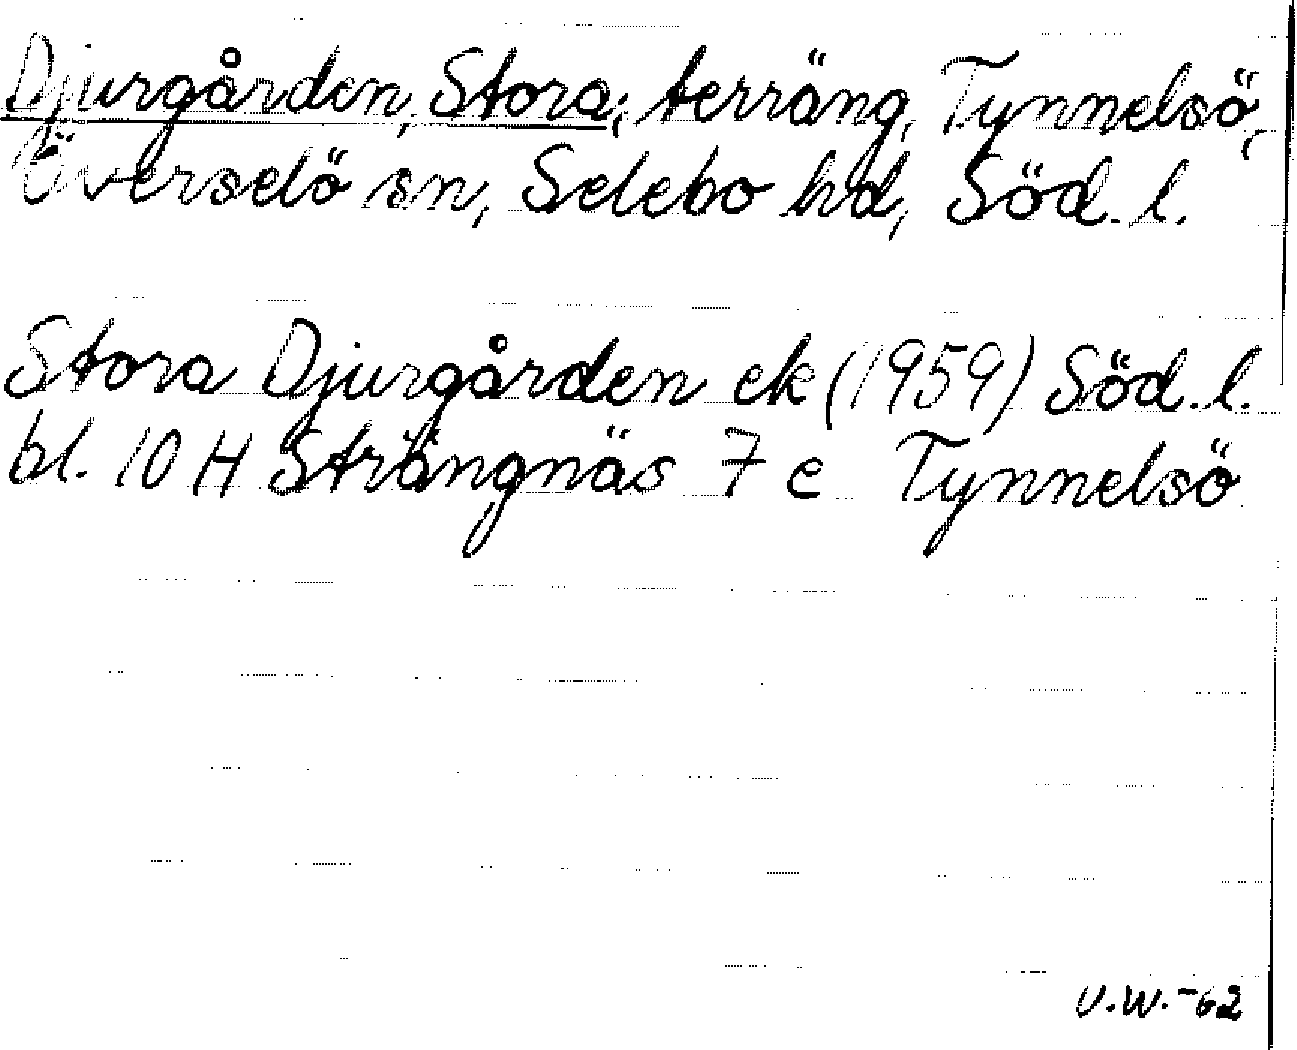 Djurgården, Stora, terräng, Tynnelsö,
Överselö sn, Selebo hd, Söd. l.
Stora Djurgården ek (1959) Söd. l.
bl. 10 H Strängnäs 7 e Tynnelsö
U.W.-62